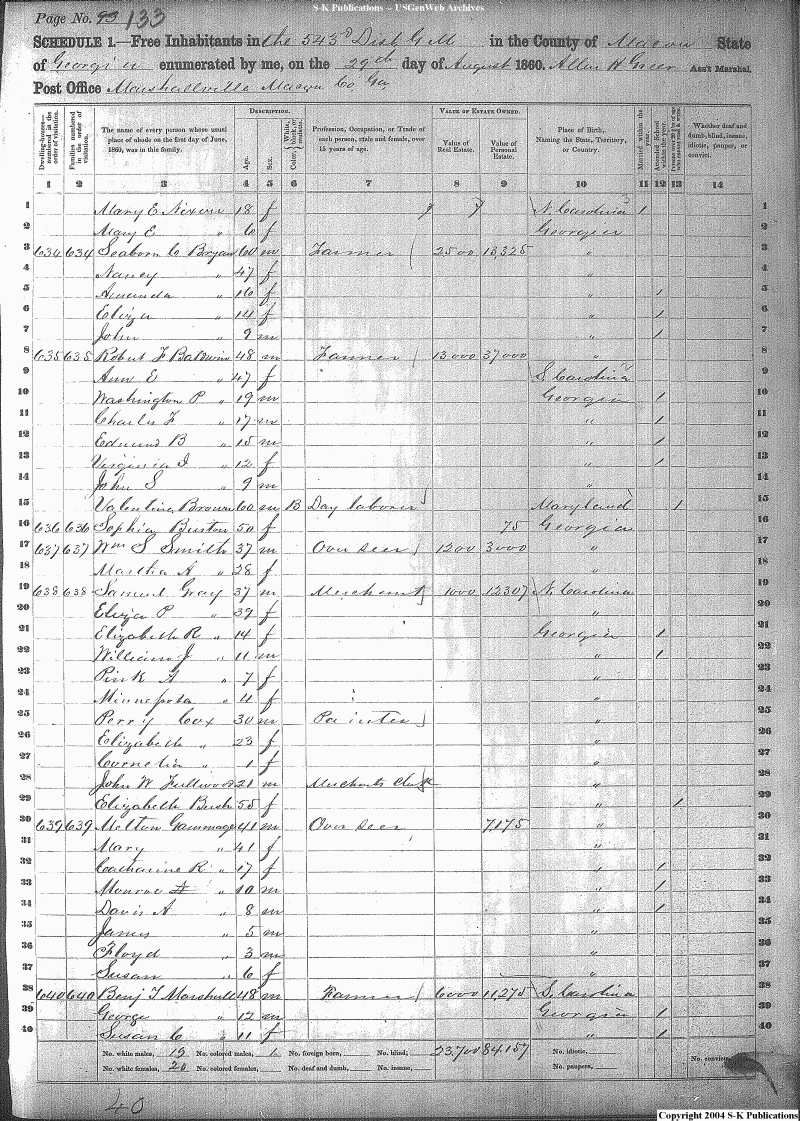 S-K Publications – USGenWeb Archives
Page No. 93 133
SCHEDULE 1.—Free Inhabitants in the 543d Dist G M in the County of Macon State
of Georgia enumerated by me, on the 29th day of August 1860. Allen H Greer Ass't Marshal.
Post Office Marshallville Macon Co Ga
Dwelling-houses—numbered in the order of visitation. Families numbered in the order of visitation. The name of every person whose usual place of abode on the first day of June, 1860, was in this family. DESCRIPTION. Age. Sex. Color, White, black, or mulatto. Profession, Occupation, or Trade of each person, male and female, over 15 years of age. VALUE OF ESTATE OWNED. Value of Real Estate. Value of Personal Estate. Place of Birth, Naming the State, Territory, or Country. Married within the year. Attended School within the year. Whether deaf and dumb, blind, insane, idiotic, pauper, or convict.
1 2 3 4 5 6 7 8 9 10 11 12 13 14
1 Mary E Nixon 18 f N. Carolina 1 1
2 Mary E " 6 f Georgia 2
3 634 634 Seaborn C Bryan 60 m Farmer 2500 13,325 " 3
4 Nancy " 47 f " 4
5 Amenda " 16 f " 1 5
6 Eliza " 14 f " 1 6
7 John " 9 m " 1 7
8 635 635 Robert F Baldwin 48 m Farmer 13000 37000 " 8
9 Ann E " 47 f S. Carolina 9
10 Washington P " 19 m Georgia 1 10
11 Charles F " 17 m " 1 11
12 Edmund B " 15 m " 1 12
13 Virginia I " 12 f " 1 13
14 John S " 9 m " 14
15 Valentine Brown 60 m B Day laborer Maryland 1 15
16 636 636 Sophia Buston 50 f 75 Georgia 16
17 637 637 Wm S Smith 37 m Over seer 1200 3000 " 17
18 Martha A " 28 f " 18
19 638 638 Samuel Gray 37 m Merchant 1000 12307 N. Carolina 19
20 Eliza P " 39 f " 20
21 Elizabeth R " 14 f Georgia 1 21
22 William J " 11 m " 1 22
23 Pink A " 7 f " 23
24 Minnesota " 4 f " 24
25 Perry Cox 30 m Painter " 25
26 Elizabeth " 23 f " 26
27 Cornelia " 1 f " 27
28 John W Fullwood 21 m Merchants Clerk " 28
29 Elizabeth Bush 55 f " 1 29
30 639 639 Melton Gammage 41 m Over seer 7,175 " 30
31 Mary " 41 f " 31
32 Catharine R " 17 f " 1 32
33 Monroe " 10 m " 1 33
34 Davis A " 8 m " 1 34
35 James " 5 m " 35
36 Floyd " 3 m " 36
37 Susan " 6 f " 37
38 640 640 Benj T Marshall 48 m Farmer 6000 11,275 S. Carolina 38
39 George " 12 m Georgia 1 39
40 Susan C " 11 f " 1 40
No. white males, 19 No. colored males, 1 No. foreign born, No. blind, 23,700 84,157 No. idiotic, No. convicts,
No. white females, 20 No. colored females, No. deaf and dumb, No. insane, No. paupers,
40
Copyright 2004 S-K Publications